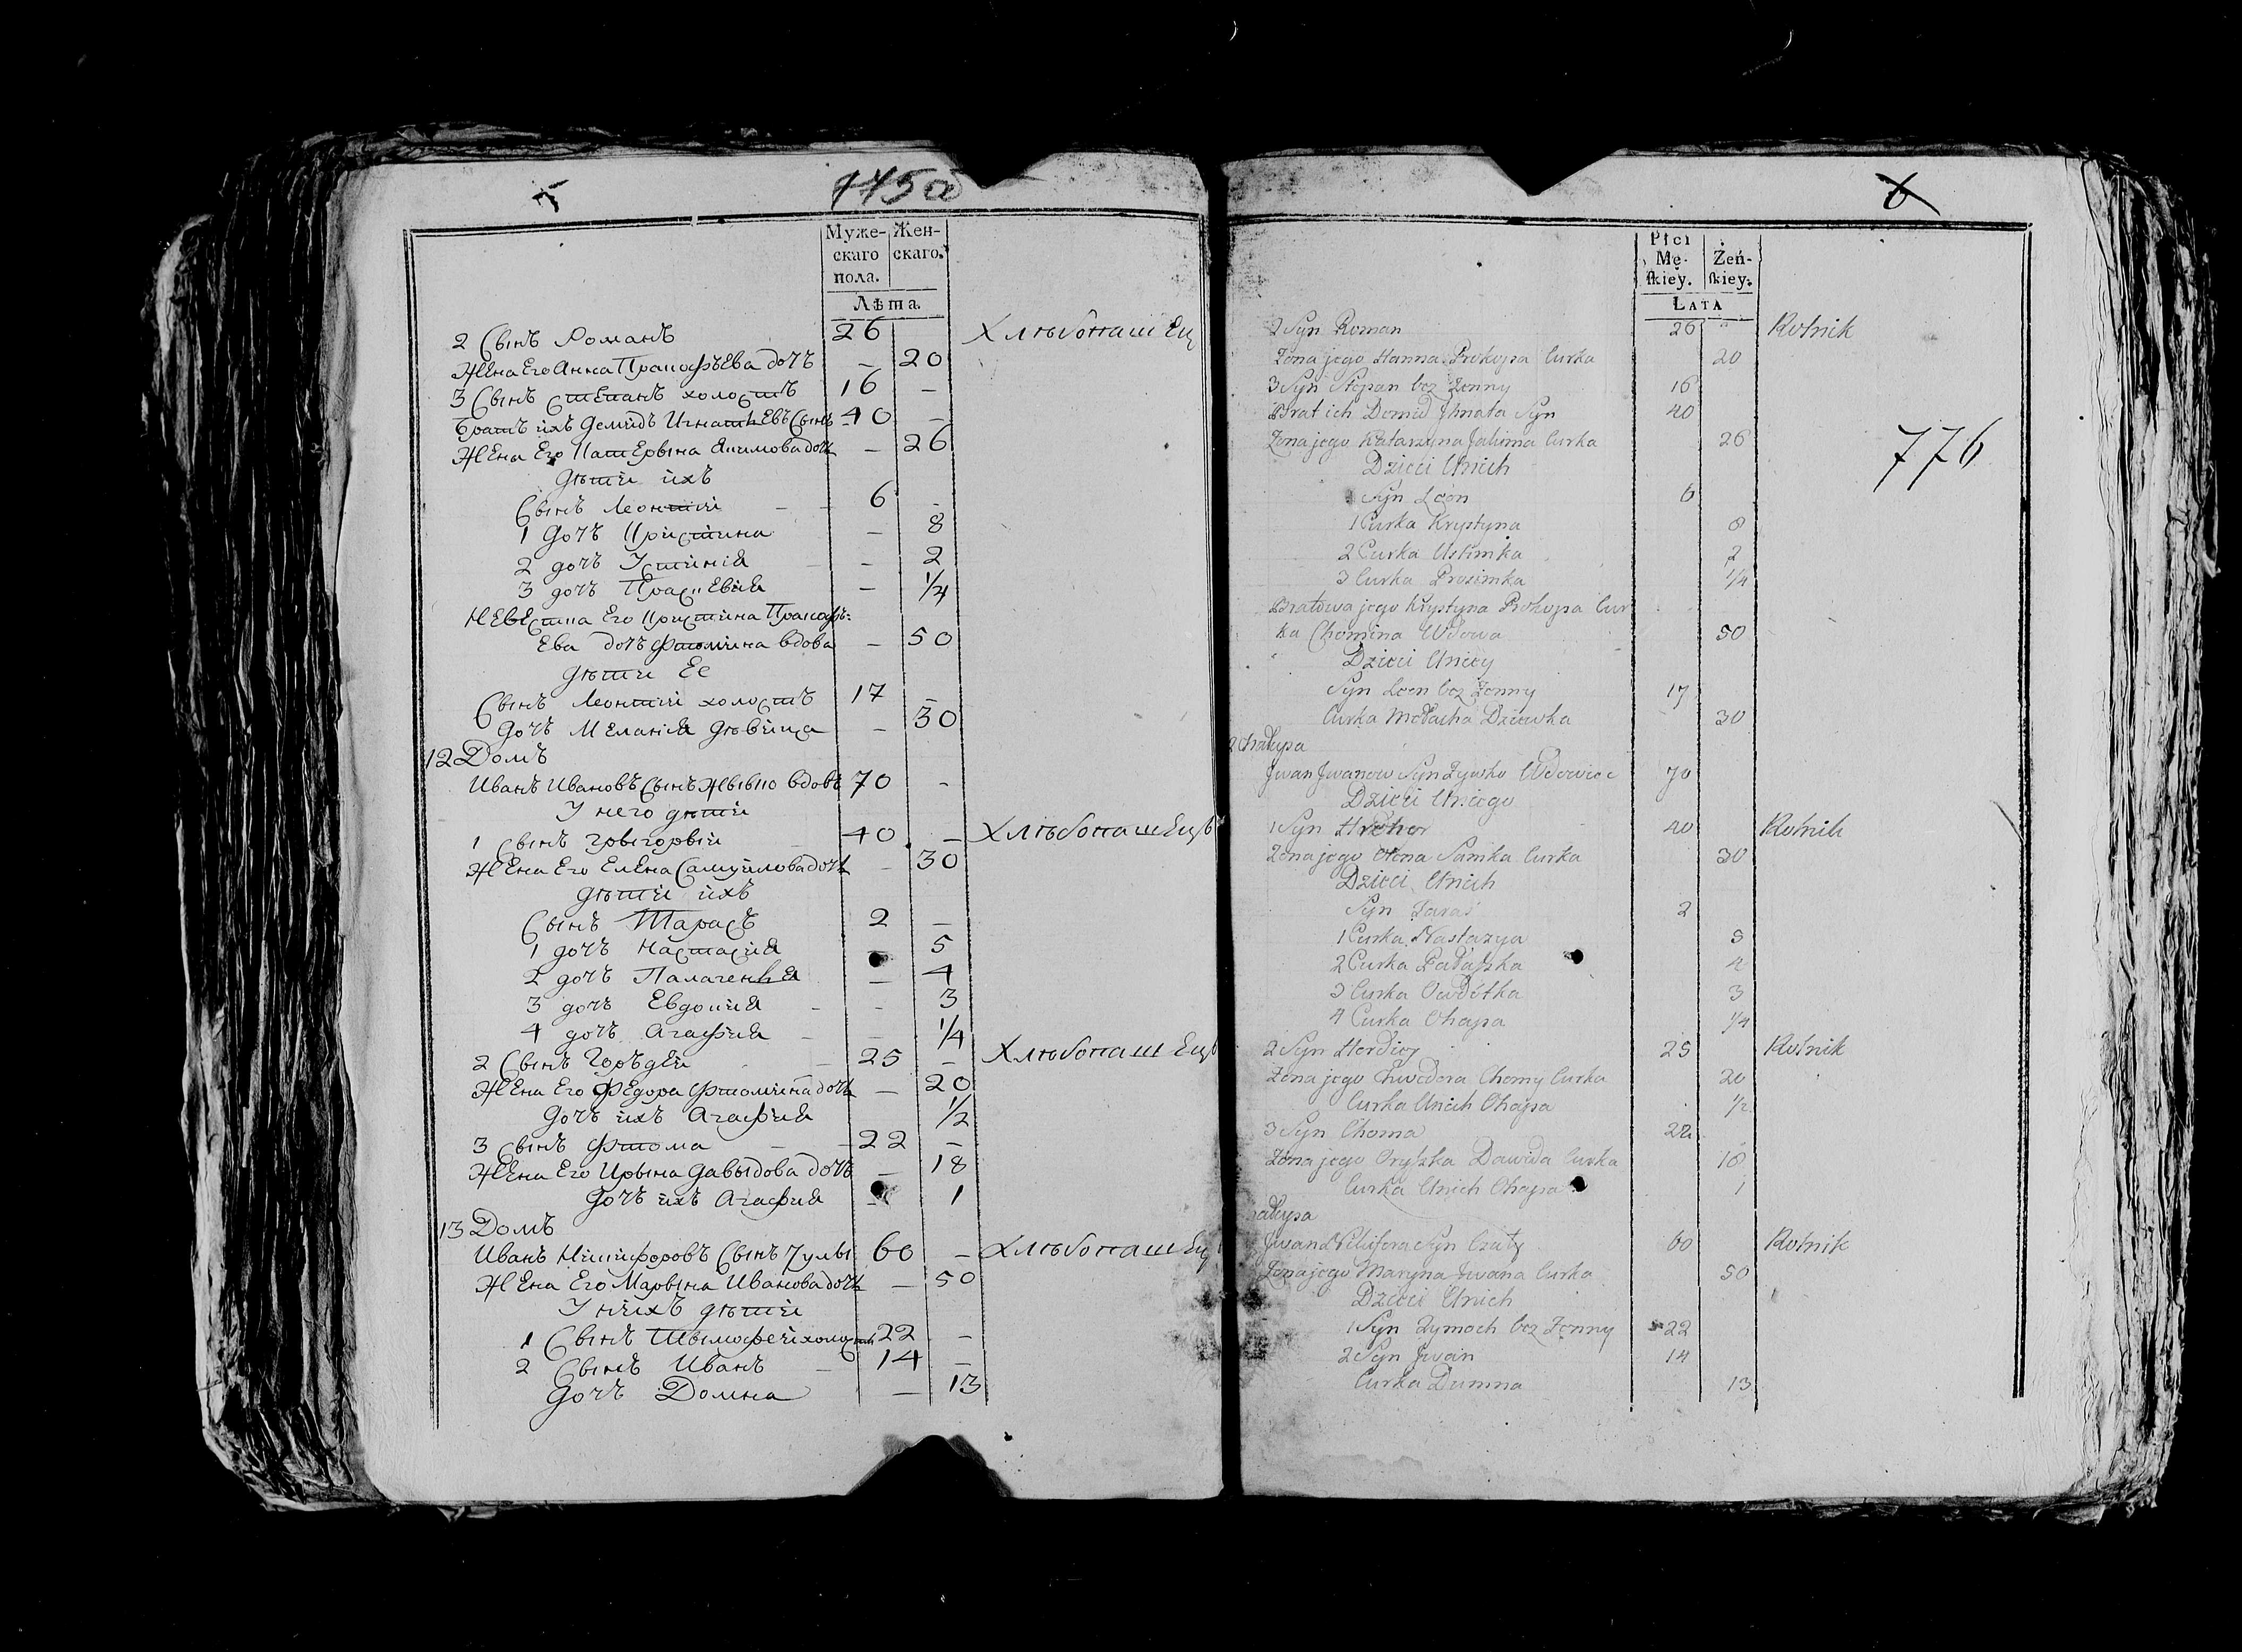 5
175а
Муже-
скаго
пола.
Жен-
скаго.
Лѣта
2 Сынъ Романъ 26 Хлѣбопашец
Жена Его Анна Прокофьева дочь — 20
3 Сынъ Степанъ холостъ 16 —
Братъ ихъ Демидъ Игнатьевъ Сынъ 40 —
Жена Его Катерына Якимова дочь — 26
Дѣти ихъ
Сынъ Леонтий — 6 -
1 дочь Кристина — 8
2 дочь Устиния - 2
3 дочь Праскевия — 1/4
Невестка Его Кристина Прокофь-
ева дочь Фтомина вдова — 50
Дѣти Ее
Сынъ Леонтий холостъ 17 —
Дочь Мелания дѣвица — 30
12 Домъ
Иванъ Ивановъ Сынъ вдовъ 70 -
У него дѣти
1 Сынъ Грыгорый 40 — Хлѣбопашецъ
Жена Его Елена Самуйлова дочь — 30
Дѣти ихъ
Сынъ Тарасъ 2 —
1 дочь Настасия — 5
2 дочь Палагенья — 4
3 дочь Евдокия - 3
4 дочь Агафия — 1/4
2 Сынъ Горъдей 25 — Хлѣбопашецъ
Жена Его Федора Фтомина дочь — 20
Дочь ихъ Агафия 1/2
3 Сынъ Фтома 22 —
Жена Его Ирына Давыдова дочь — 18
Дочь ихъ Агафия — 1
13 Домъ
Иванъ Никифоровъ Сынъ 60 — Хлѣбопашец
Жена Его Марына Иванова дочь — 50
У нихъ дѣти
1 Сынъ Тымофей холостъ 22 —
2 Сынъ Иванъ — 14 —
Дочь Домна — 13
6
Płci
Mę-
ſkiey.
Żeń-
ſkiey.
LATA
776
2 Syn Roman 26 Rolnik
Zona jego Hanna Prokopa Curka 20
3 Syn Stepan bez Zonny 16
Brat ich Demid Ihnata Syn 40
Zona jego Katarzyna Jakima Curka 26
Dzieci Unich
Syn Leon 6
1 Curka Krystyna 8
2 Curka Ustimka 2
3 Curka Prosimka 1/4
Bratowa jego Krystyna Prokopa Cur
ka Chomina Wdowa 50
Dzieci Uniey
Syn Leon bez Zonny 17
Curka Mełacha Dziewka 30
Chałupa
Jwan Jwanow Syn Wdowiec 70
Dzieci Uniego
1 Syn Hrehor 40 Rolnik
Zona jego Olena Samka Curka 30
Dzieci Unich
Syn Taras 2
1 Curka Nastazya 5
2 Curka Pałaszka 4
3 Curka Owdotka 3
4 Curka Ohapa 1/4
2 Syn Hordiey 25 Rolnik
Zona jego Chwedora Chomy Curka 20
Curka Unich Ohapa 1/2
3 Syn Choma 22
Zona jego Oryszka Dawida Curka 18
Curka Unich Ohapa 1
hałupa
Jwan Nikifora Syn 60 Rolnik
Zona jego Maryna Jwana Curka 50
Dzieci Unich
1 Syn Tymoch bez Zonny 22
2 Syn Jwan 14
Curka Dumna 13